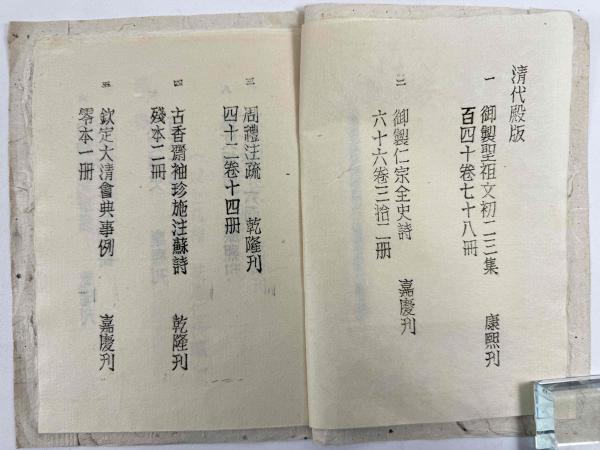 清代殿版
一 御製聖祖文初二三集 康熙刊
百四十卷七十八冊
二 御製仁宗全史詩 嘉慶刊
六十六卷三拾二册
三 周禮注疏 乾隆刊
四十二卷十四册
四 古香齋袖珍施注蘇詩 乾隆刊
殘本二册
五 欽定大清會典事例 嘉慶刊
零本一册